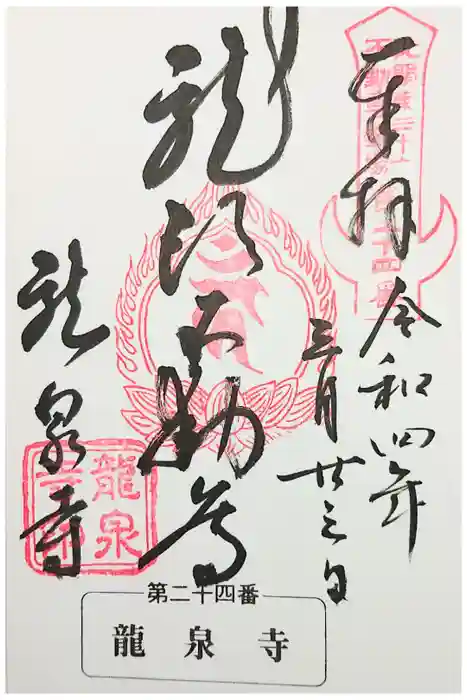 奉拝
令和四年
三月廿三日
龍頭不動尊
龍泉寺
龍泉
第二十四番
龍泉寺